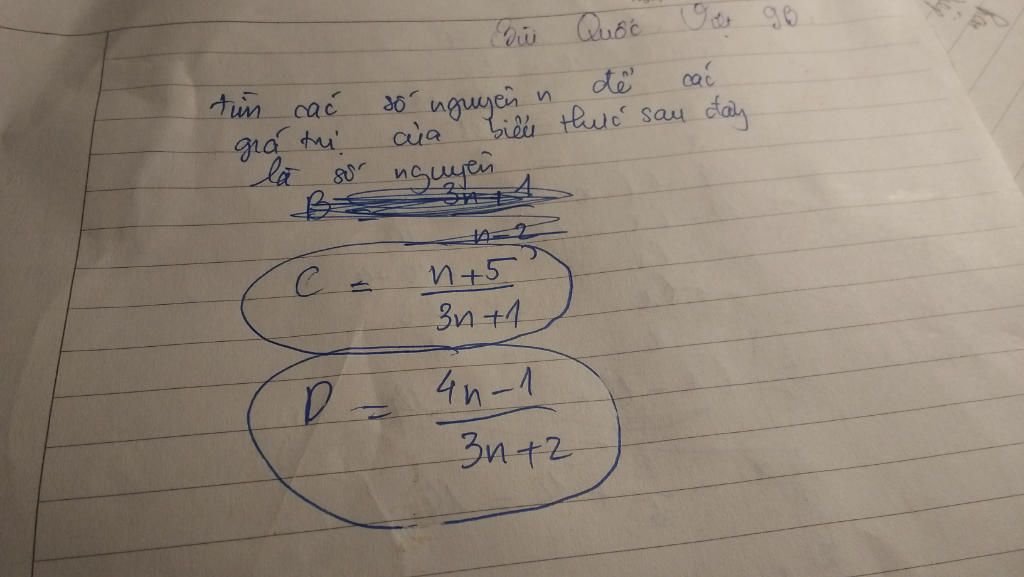 Quốc 9B
tìm các số nguyên n để các
giá trị của biểu thức sau đây
là số nguyên
B = 3n + 1
n - 2
C = n+5
3n+1
D = 4n-1
3n+2